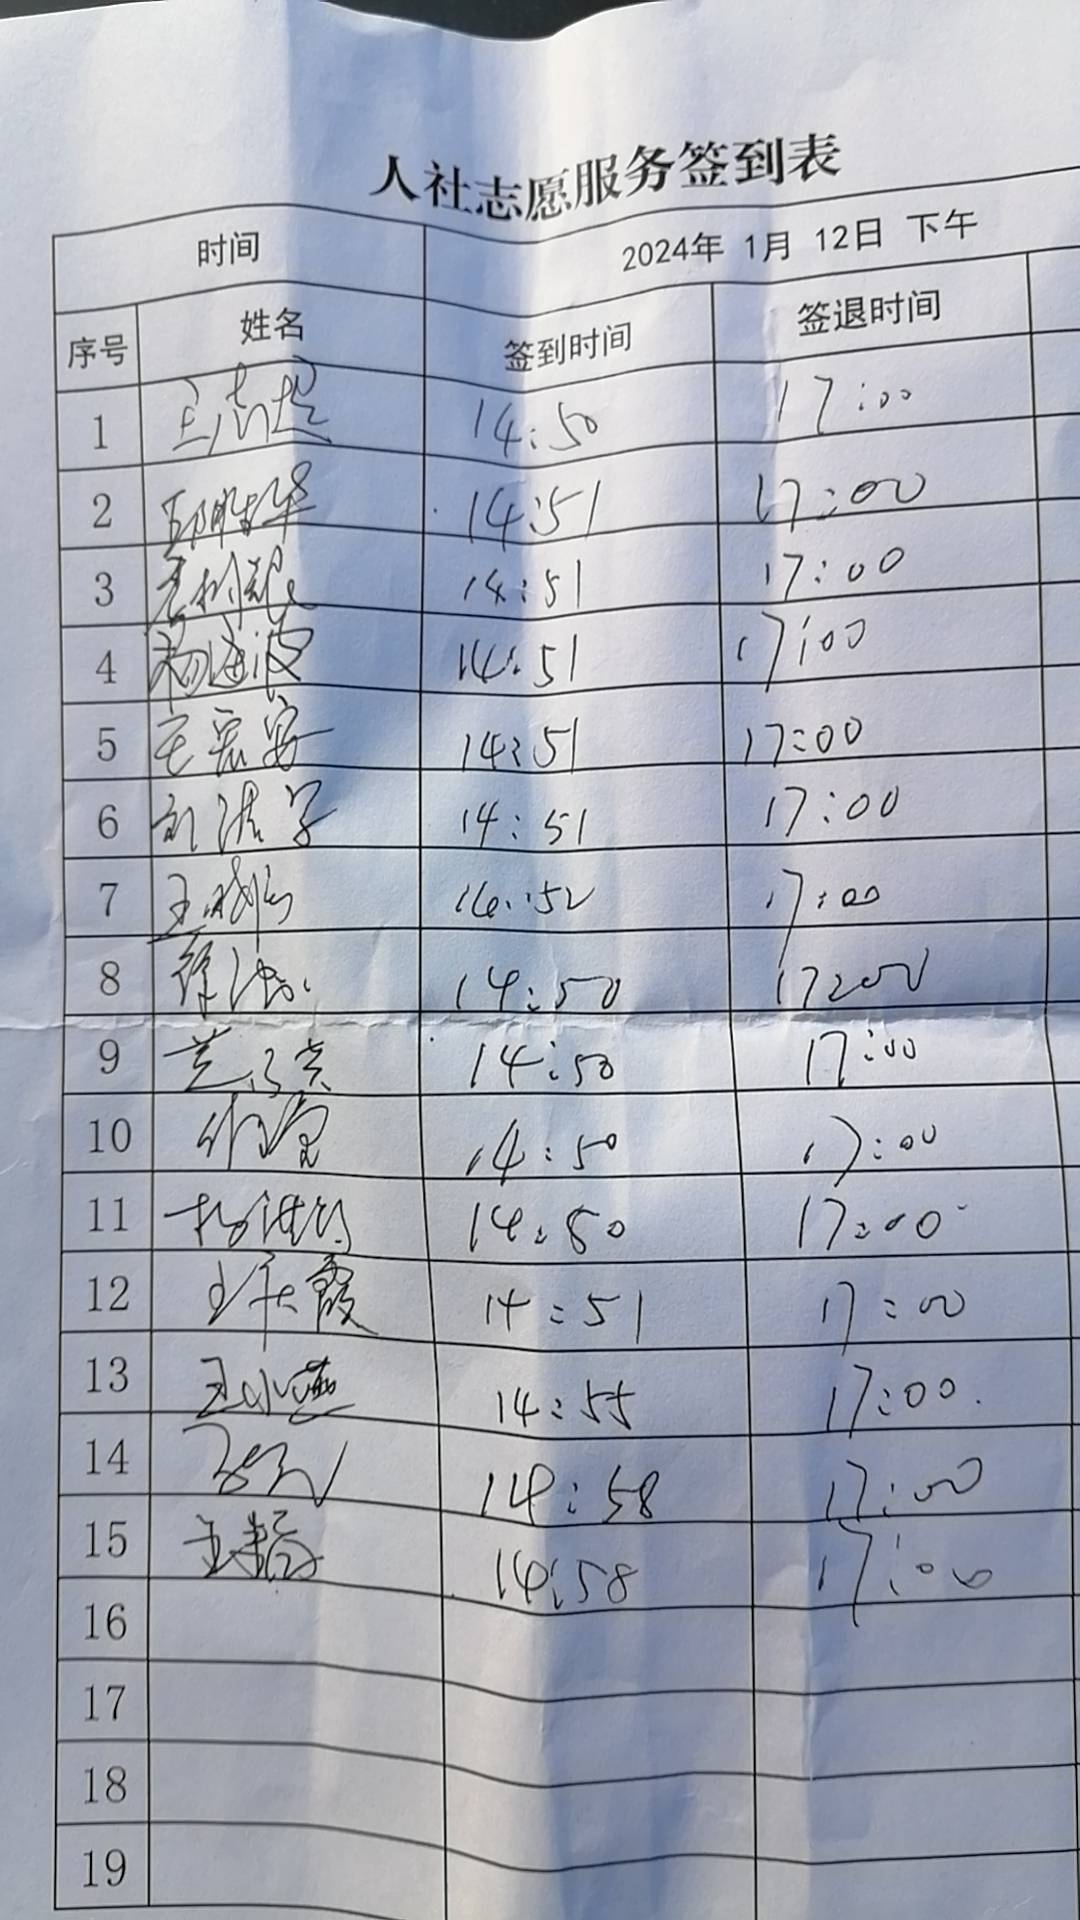 人社志愿服务签到表
时间 2024年 1月 12日 下午
序号 姓名 签到时间 签退时间
1 王志超 14:50 17:00
2 14:51 17:00
3 14:51 17:00
4 杨海波 14:51 17:00
5 14:51 17:00
6 14:51 17:00
7 王 14:52 17:00
8 徐 14:50 17:00
9 14:50 17:00
10 14:50 17:00
11 14:50 17:00
12 王 霞 14:51 17:00
13 王小燕 14:55 17:00
14 14:58 17:00
15 14:58 17:00
16
17
18
19